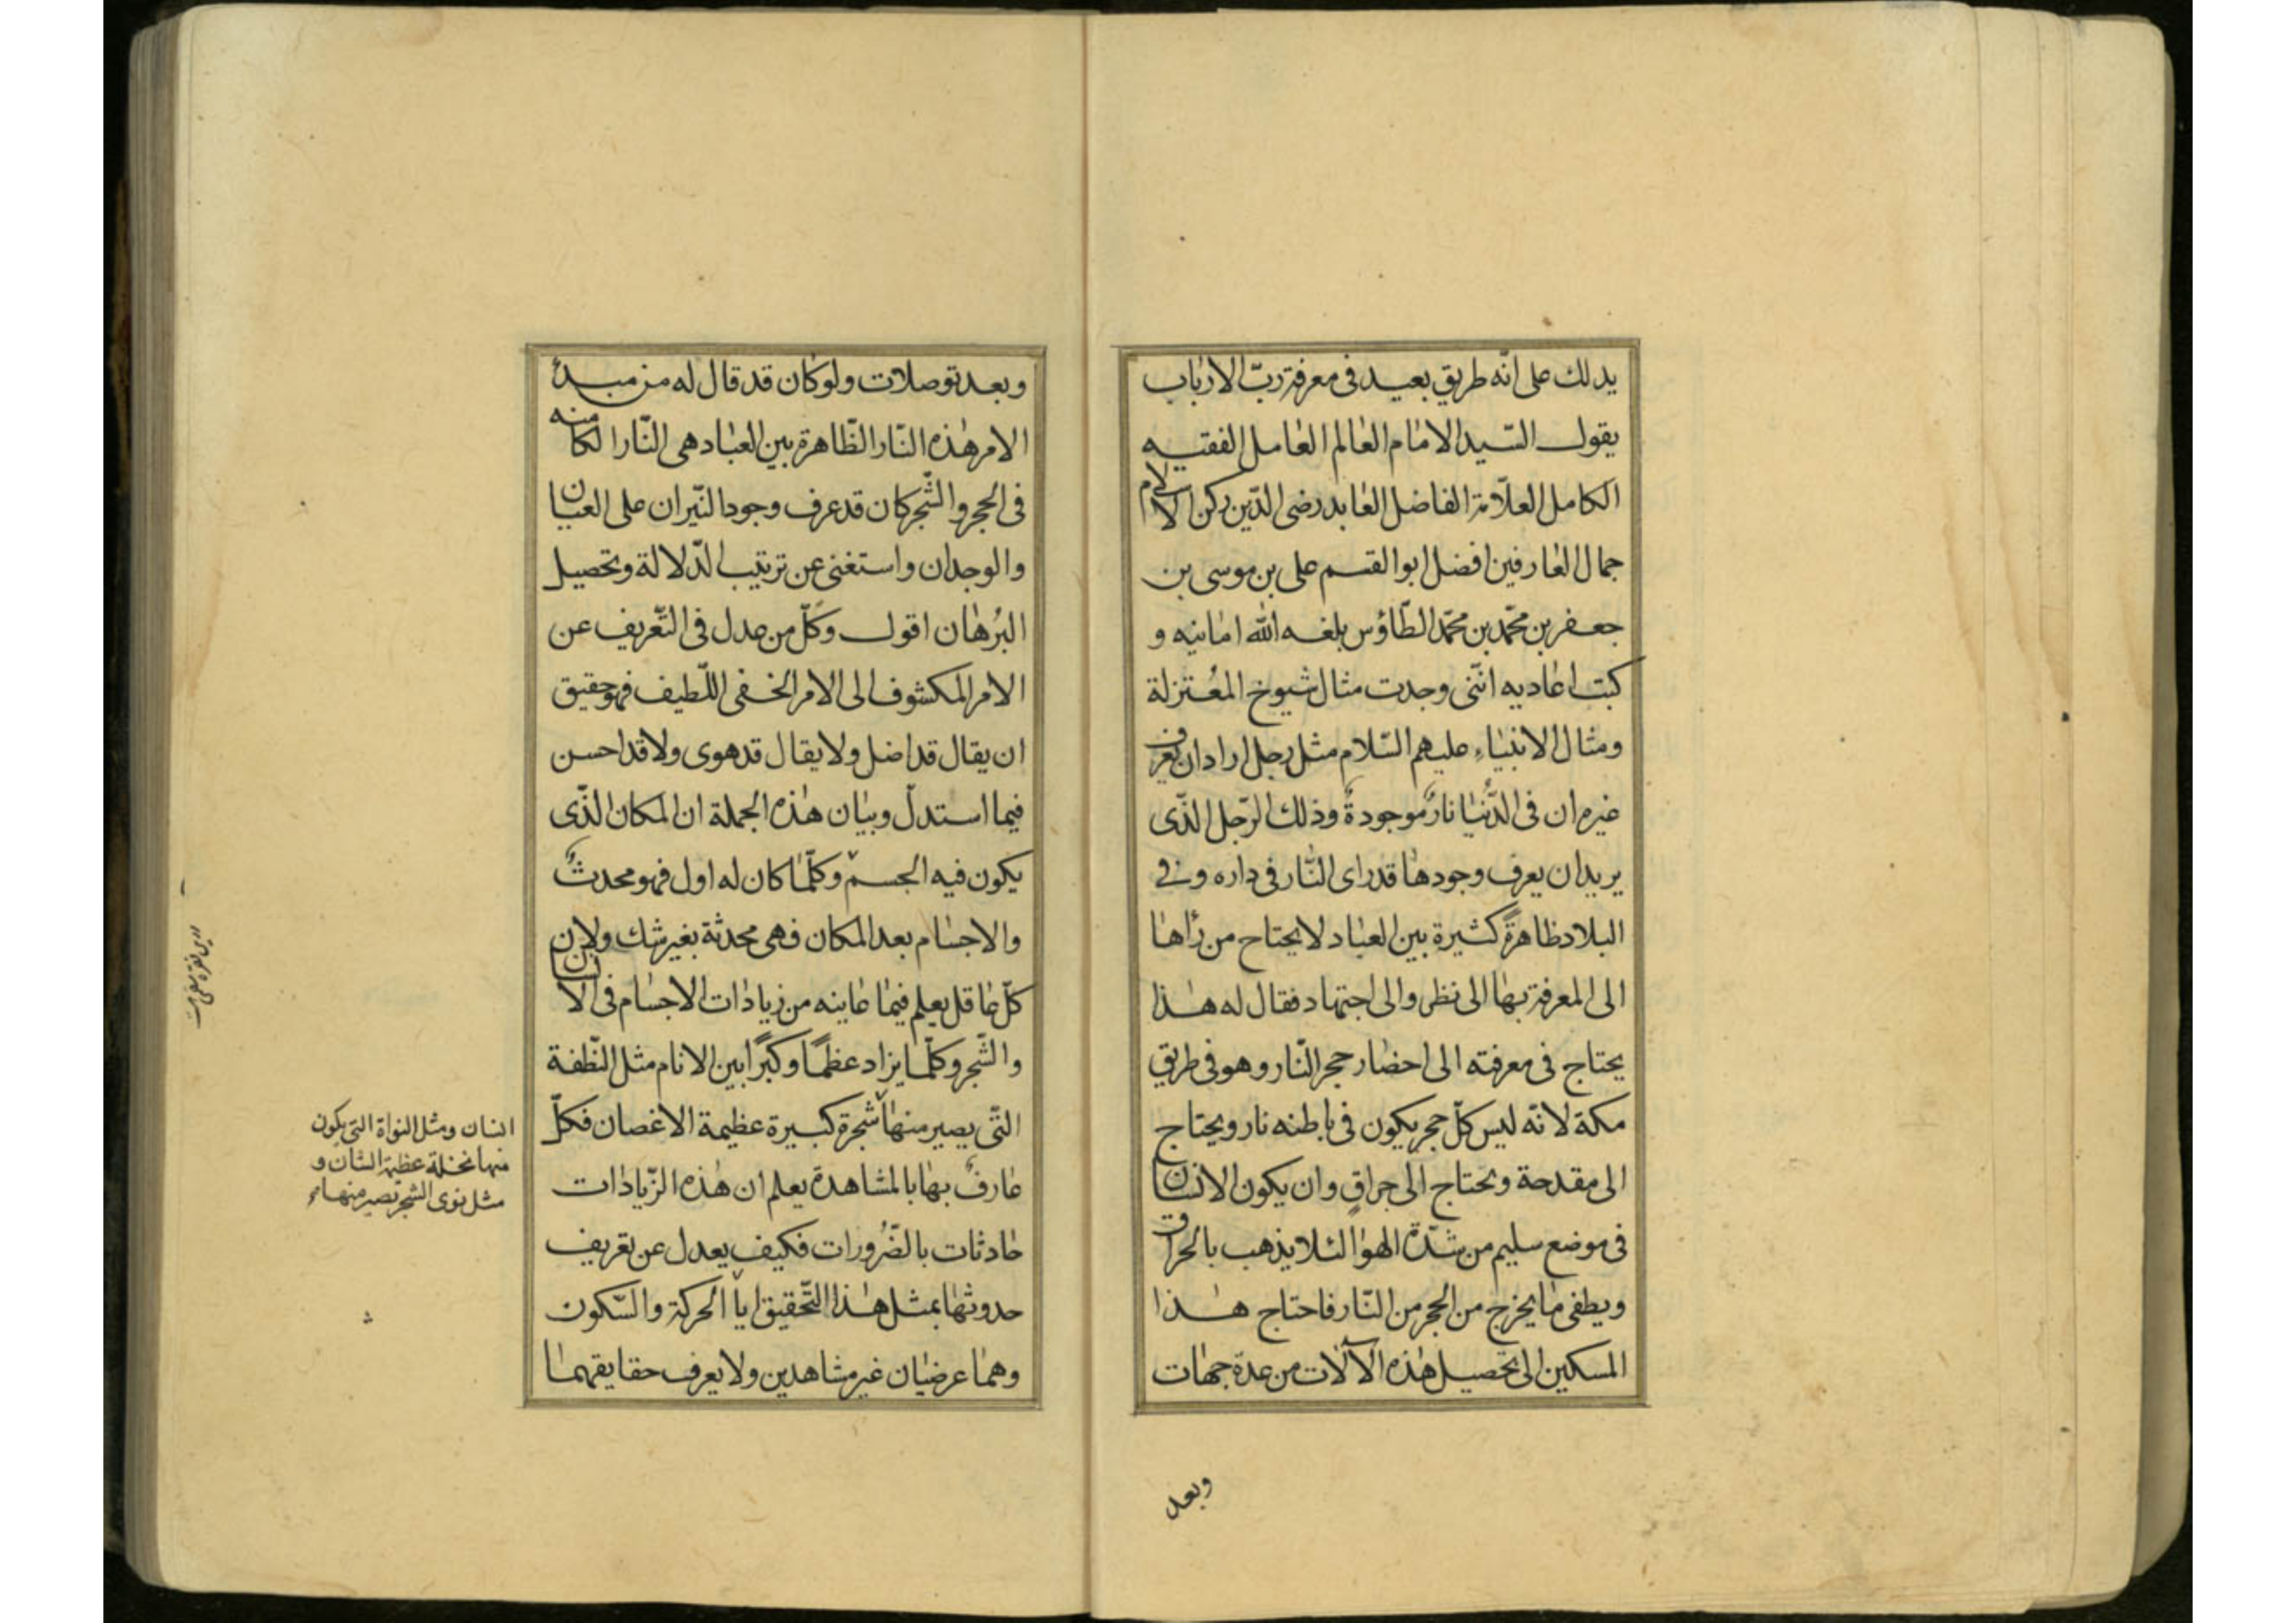 يدلك على انّه طريق بعيد فى معرفة ربّ الارباب
يقول السّيد الامام العالم العامل الفقيه
الكامل العلّامة الفاضل العابد رضى الدّين ركن الاسلام
جمال العارفين افضل ابو القسم على بن موسى بن
جعفر بن محمّد بن محمّد الطّاؤس بلغه اللّه امانيه و
كبت اعاديه انّنى وجدت مثال شيوخ المعتزلة
ومثال الانبياء عليهم السّلام مثل رجل اراد ان يعرف
غيره ان فى الدّنيا نارٌ موجودةٌ وذلك الرّجل الذّى
يريد ان يعرف وجودها قد راى النّار فى داره وفى
البلاد ظاهرةً كثيرة بين العباد لا يحتاج من رأها
الى المعرفة بها الى نظر والى اجتهاد فقال له هذا
يحتاج فى معرفته الى احضار حجر النّار وهو فى طريق
مكة لانّه ليس كلّ حجر يكون فى باطنه نار ويحتاج
الى مقدحة ويحتاج الى حراقٍ وان يكون الانسان
فى موضع سليم من شدّة الهوا لئلا يذهب بالحراق
ويطفى ما يخرج من الحجر من النّار فاحتاج هذا
المسكين الى تحصيل هذه الآلات من عدة جهات
وبعد
وبعد توصلات ولو كان قد قال له من مبدء
الامر هذه النّار الظّاهرة بين العباد هى النّار الكامنه
فى الحجر والشّجر كان قد عرف وجود النّيران على العيان
والوجدان واستغنى عن ترتيب الدّلالة وتحصيل
البرُهان اقول وكلّ من عدل فى التّعريف عن
الامر المكشوف الى الامر الخفى اللّطيف فهو حقيق
ان يقال قد اضل ولا يقال قد هوى ولا قد احسن
فيما استدلّ وبيان هذه الجملة ان المكان الذّى
يكون فيه الجسم وكلّما كان له اول فهو محدثٌ
والاجسام بعد المكان فهى محدثة بغير شك ولان
كلّ عاقل يعلم فيما عاينه من زيادات الاجسام فى الانسان
والشّجر وكلّما يزاد عظمًا وكبرًا بين الانام مثل النّطفة
التّى يصير منها شجرة كبيرة عظيمة الاغصان فكلّ
عارفٌ بها بالمشاهدة يعلم ان هذه الزّيادات
حادثات بالضّرُورات فكيف يعدل عن تعريف
حدوثها بمثل هذا التّحقيق ايا الحركة والسّكون
وهما عرضيان غير مشاهدين ولا يعرف حقايقهما
انسان ومثل النواة التى يكون
منها نخلة عظيمة الشان و
مثل نوى الشجر تصير منها